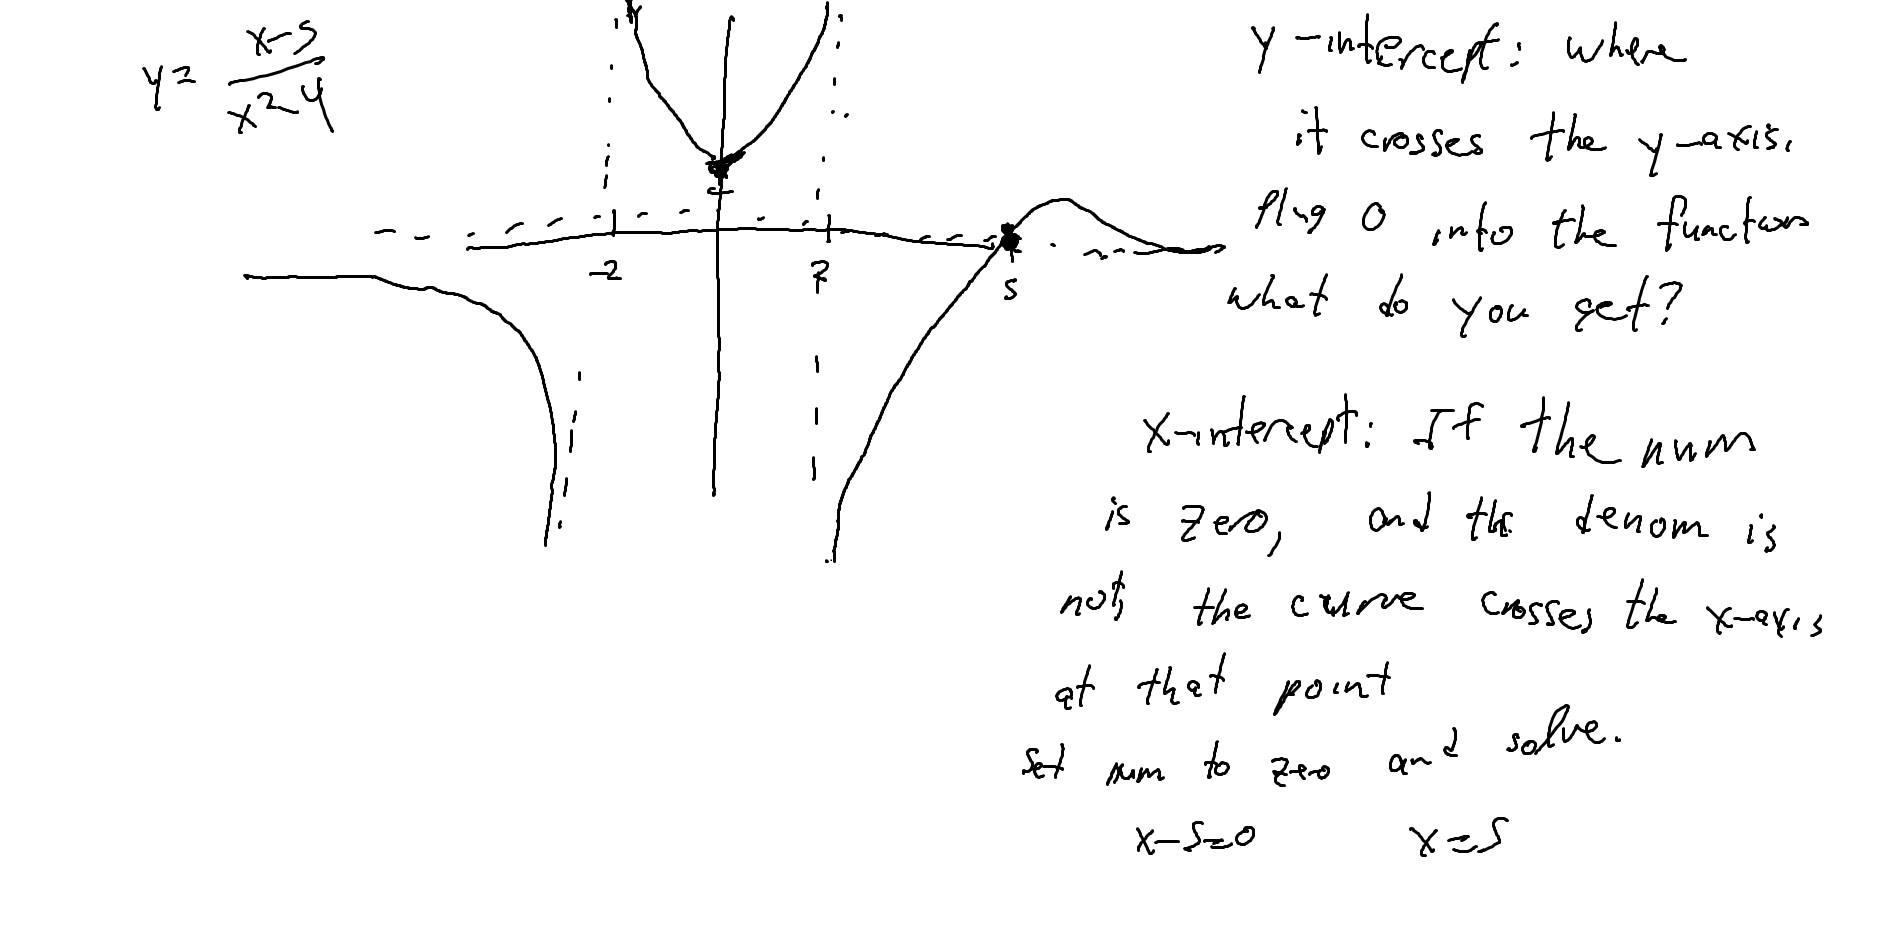 y = x-5
x²-4
-2
2
5
y-intercept: where
it crosses the y-axis.
Plug 0 into the function
what do you get?
x-intercept: If the num
is zero, and the denom is
not, the curve crosses the x-axis
at that point
set num to zero and solve.
x-5=0 x=5